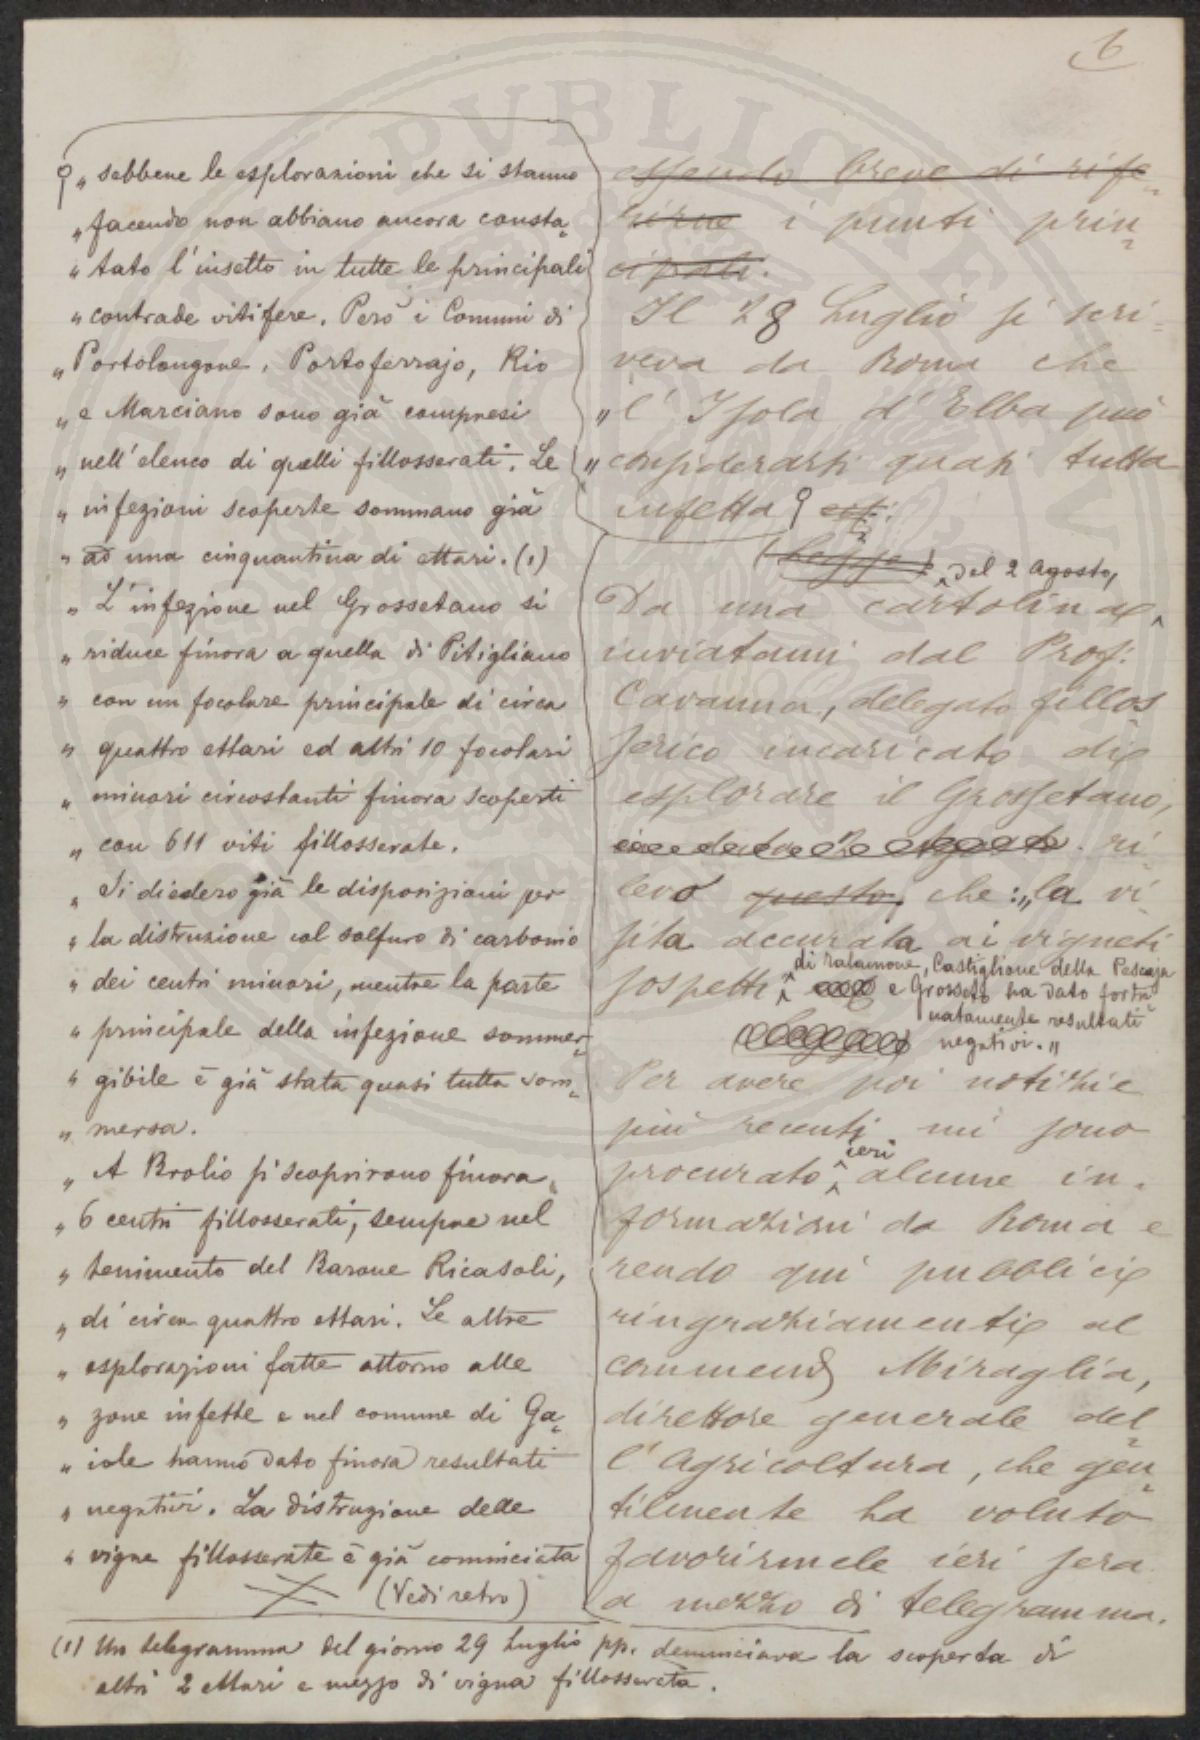 6
„ sebbene le esplorazioni che si stanno
„ facendo non abbiano ancora consta=
„ tato l'insetto in tutte le principali
„ contrade vitifere. Però i Comuni di
„ Portolongone, Portoferrajo, Rio
„ e Marciano sono già compresi
„ nell'elenco di quelli fillosserati. Le
„ infezioni scoperte sommano già
„ ad una cinquantina di ettari. (1)
„ L'infezione nel Grossetano si
„ riduce finora a quella di Pitigliano
„ con un focolare principale di circa
„ quattro ettari ed altri 10 focolari
„ minori circostanti finora scoperti
„ con 611 viti fillosserate.
„ Si diedero già le disposizioni per
„ la distruzione col solfuro di carbonio
„ dei centri minori, mentre la parte
„ principale della infezione sommer=
„ gibile è già stata quasi tutta som=
„ mersa.
„ A Brolio si scoprirono finora
„ 6 centri fillosserati, sempre nel
„ tenimento del Barone Ricasoli,
„ di circa quattro ettari. Le altre
„ esplorazioni fatte attorno alle
„ zone infette e nel comune di Ga=
„ iole hanno dato finora resultati
„ negativi. La distruzione delle
„ vigne fillosserate è già cominciata
(Vedi retro)
essendo breve di rife=
rirne i punti prin=
cipali.
Il 28 Luglio si scri=
veva da Roma che
„ l'Isola d'Elba può
„ considerarsi quasi tutta
infetta
(Legge) del 2 Agosto,
Da una cartolina
inviatami dal Prof:
Cavanna, delegato fillos
serico incaricato di
esplorare il Grossetano,
ri=
levo questo, che: „la vi=
sita accurata ai vigneti
di Talamone, Castiglione della Pescaja
sospetti e Grosseto ha dato fortu=
natamente resultati
negativi. „
Per avere poi notizie
più recenti mi sono
ieri
procurato alcune in=
formazioni da Roma e
rendo qui pubblici
ringraziamenti al
commend Miraglia,
direttore generale del=
l'Agricoltura, che gen=
tilmente ha voluto
favorirmele ieri sera
a mezzo di telegramma.
(1) Un telegramma del giorno 29 Luglio pp. denunciava la scoperta di
altri 2 ettari e mezzo di vigna fillosserata.